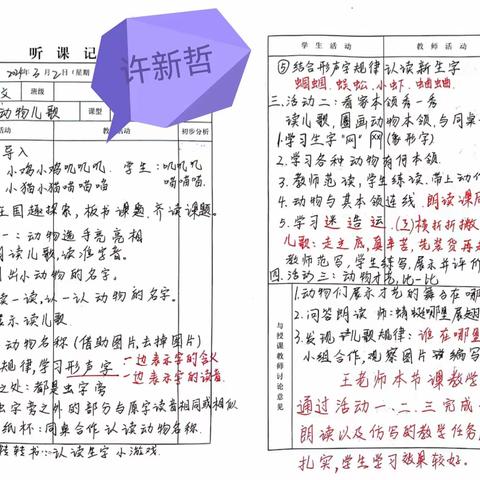 听课记
许新哲
2024年3月2日(星期
文
班级
动物儿歌
课型
活动
教
活动
初步分析
导入
小鸡小鸡叽叽叽. 学生:叽叽叽
小猫小猫喵喵喵 喵喵喵.
王国趣探索,板书课题.齐读课题.
一:动物选手亮亮相
读儿歌,读准生音.
出小动物的名字.
读一读,认一认动物的名字.
展示读儿歌
动物名称(借助图片,去掉图片)
规律,学习形声字
一边表示字的含义
一边表示字的读音.
之处:都是虫字旁
虫字旁之外的部分与原字读音相同或相似
纸杯:同桌合作认读动物名称.
转转书:认读生字小游戏.
学生活动
教师活动
⑤结合形声字规律认读新生字
蝈蝈.蜈蚣.小虾.蛐蛐
三.活动二:看客本领秀一秀
读儿歌,圈画动物本领,与同桌
1.学习生字"网" 网(象形字)
2.学习各种动物有何本领.
3.教师范读,学生练读.带上动作
4.动物与其本领连线.朗读课
5.学习迷 造 运.(辶)横折折撇
儿歌:走之底,真辛苦,先装货再走
教师范写,学生练写,展示并评价
四.活动三:动物才艺比一比
1.动物们展示才艺的舞台在哪
2.问答朗读 师:蜻蜓哪里展翅
3.发现 儿歌规律:谁在哪里
小组合作,观察图片 编写
与授课教师讨论意见
王老师本节课教学
通过活动一、二、三完成
朗读以及仿写的教学任务,
扎实,学生学习效果较好。